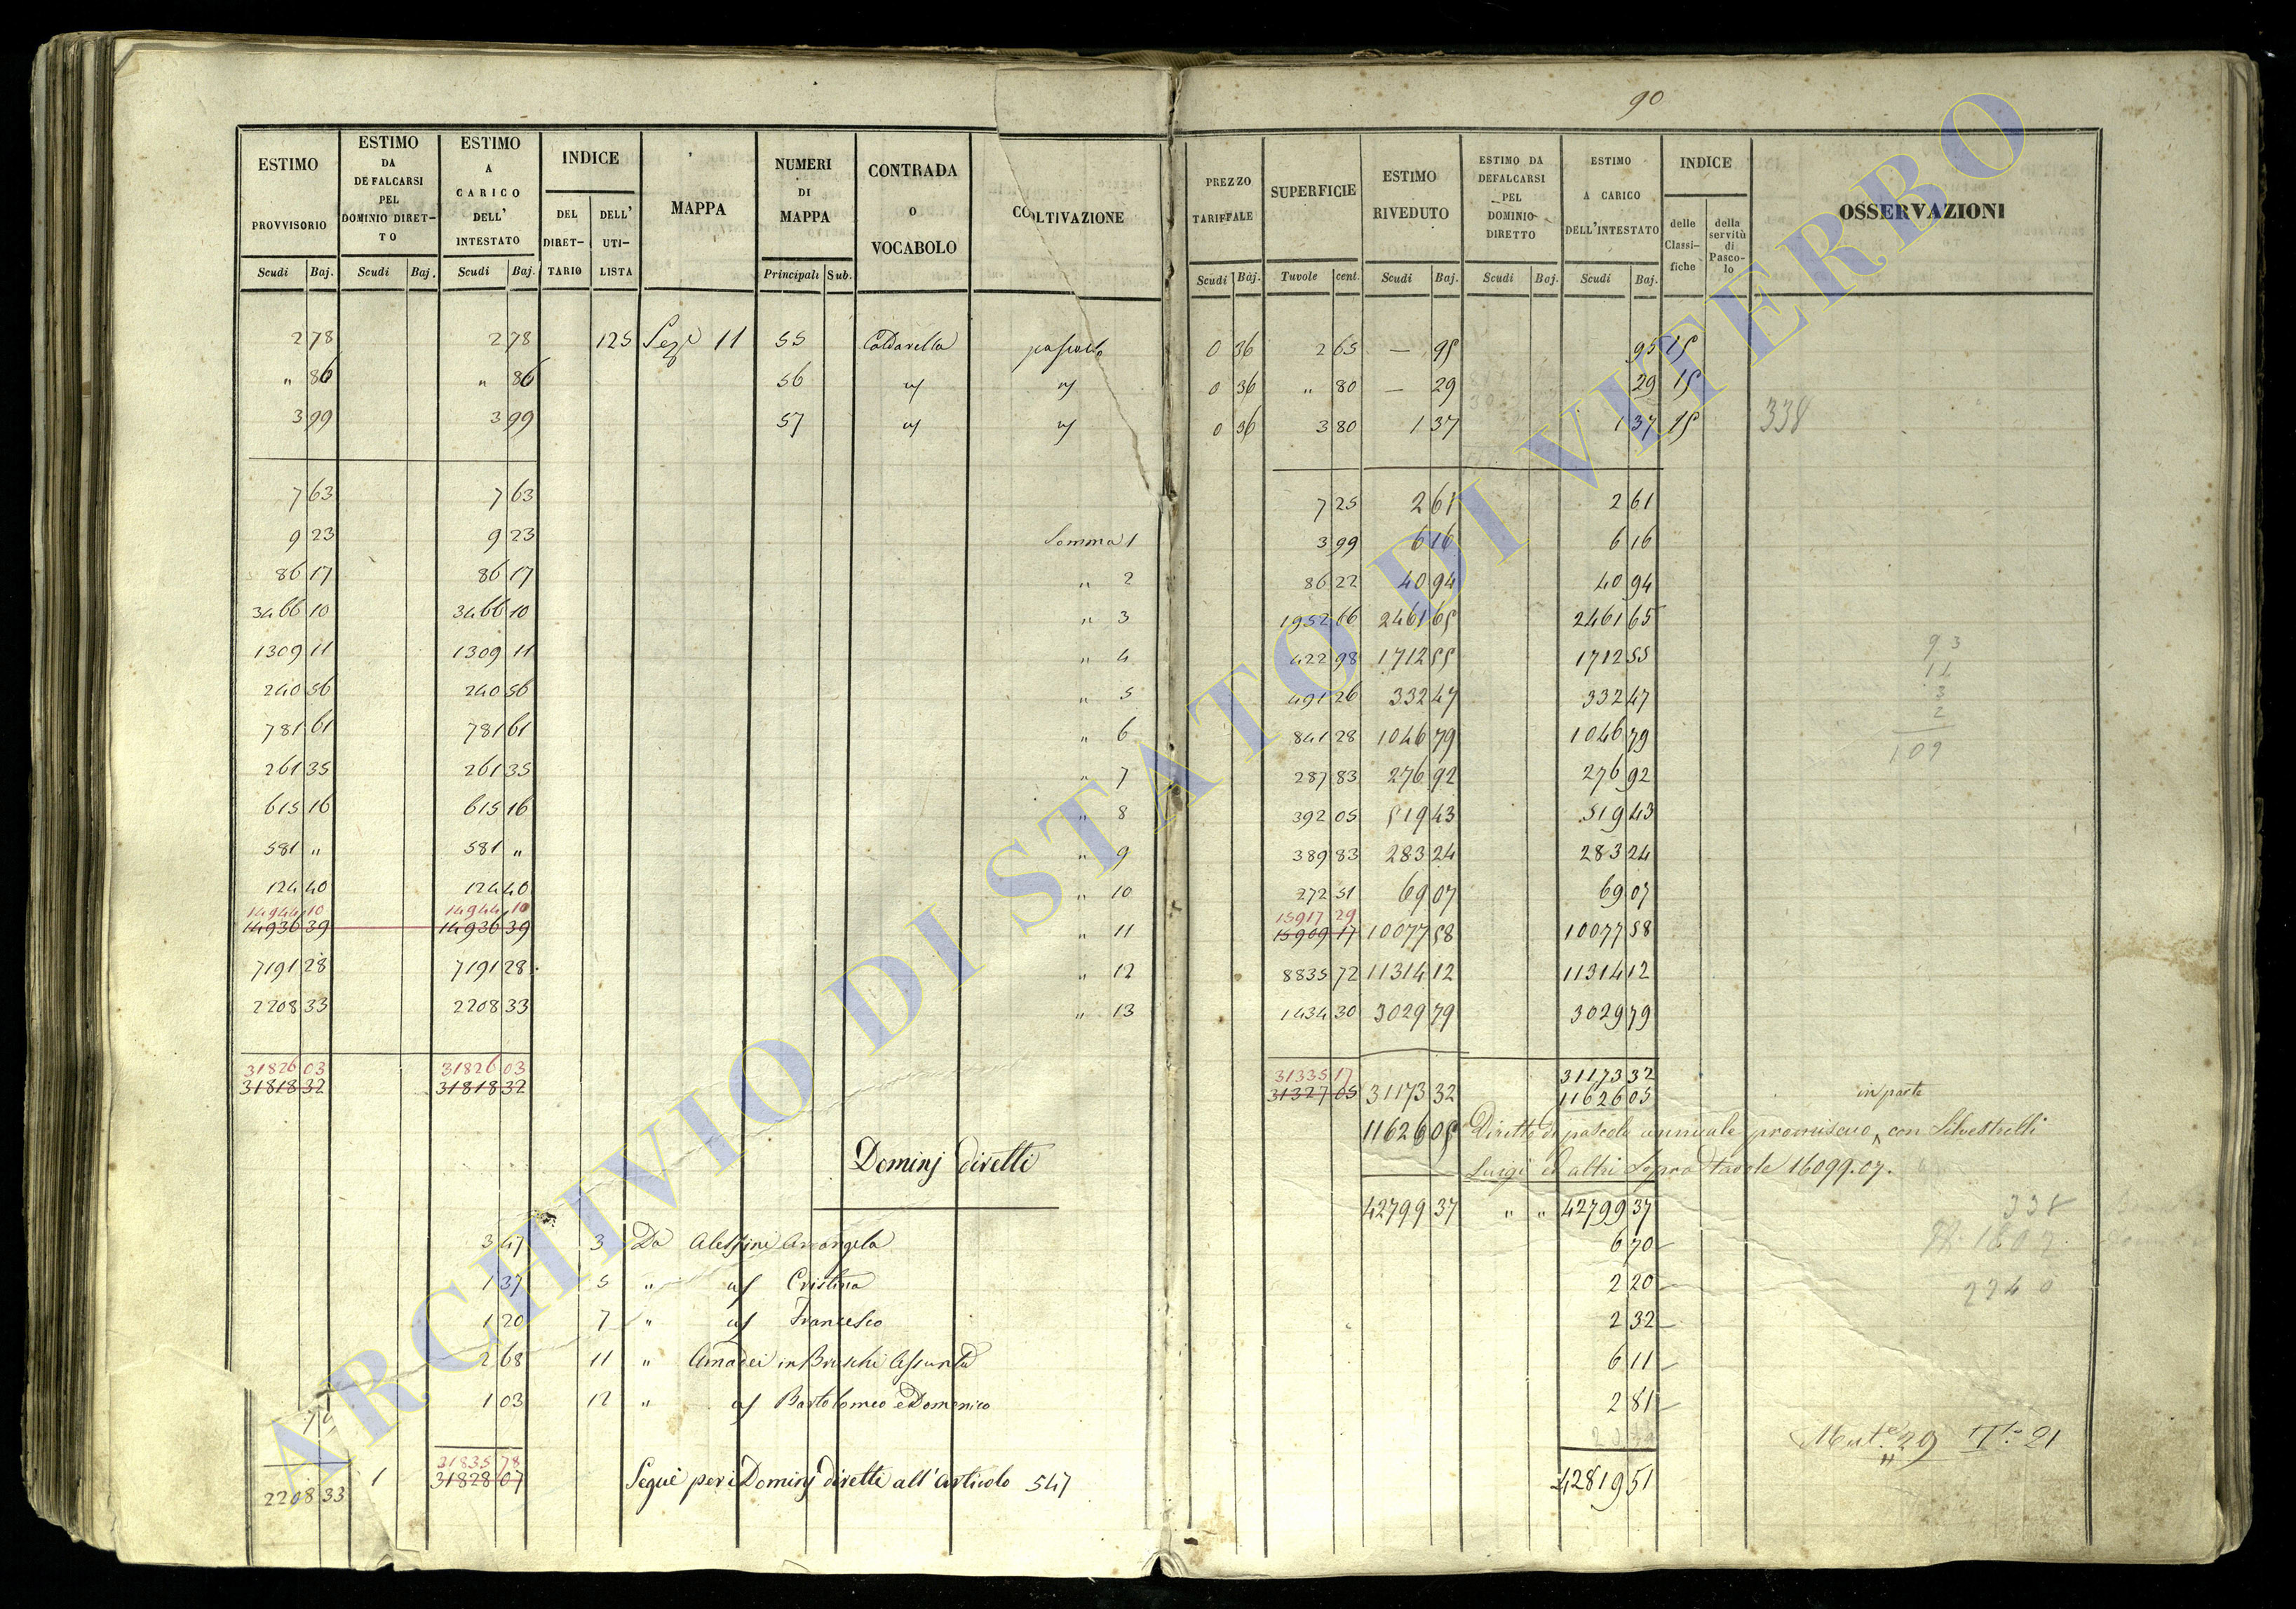 90
ESTIMO PROVVISORIO | ESTIMO DA DEFALCARSI PEL DOMINIO DIRET-TO | ESTIMO A CARICO DELL' INTESTATO | INDICE DEL DIRET-TARIO | DELL' UTI-LISTA | MAPPA | NUMERI DI MAPPA | CONTRADA O VOCABOLO | COLTIVAZIONE | PREZZO TARIFFALE | SUPERFICIE | ESTIMO RIVEDUTO | ESTIMO DA DEFALCARSI PEL DOMINIO DIRETTO | ESTIMO A CARICO DELL'INTESTATO | INDICE delle Classi-fiche | della servitù di Pasco-lo | OSSERVAZIONI
Scudi Baj. | Scudi Baj. | Scudi Baj. | Principali Sub. | Scudi Baj. | Tavole cent. | Scudi Baj. | Scudi Baj. | Scudi Baj.
2 78 | 2 78 | 125 | Sez.e 11 | 55 | Caldarella | pascolo | 0 36 | 2 65 | — 95 | 95 | 15
" 86 | " 86 | 56 | id | id | 0 36 | " 80 | — 29 | 29 | 15
3 99 | 3 99 | 57 | id | id | 0 36 | 3 80 | 1 37 | 1 37 | 15 | 338
7 63 | 7 63 | 7 25 | 2 61 | 2 61
9 23 | 9 23 | Somma 1 | 3 99 | 6 16 | 6 16
86 17 | 86 17 | " 2 | 86 22 | 40 94 | 40 94
3466 10 | 3466 10 | " 3 | 1952 66 | 2461 65 | 2461 65
1309 11 | 1309 11 | " 4 | 422 98 | 1712 55 | 1712 55 | 93
11
240 56 | 240 56 | " 5 | 491 26 | 332 47 | 332 47 | 3
2
781 61 | 781 61 | " 6 | 841 28 | 1046 79 | 1046 79 | 109
261 35 | 261 35 | " 7 | 287 83 | 276 92 | 276 92
615 16 | 615 16 | " 8 | 392 05 | 519 43 | 519 43
581 " | 581 " | " 9 | 389 83 | 283 24 | 283 24
124 40 | 124 40 | " 10 | 272 51 | 69 07 | 69 07
14944 10 | 14944 10 | 15917 29
14936 39 | 14936 39 | " 11 | 15909 17 | 10077 58 | 10077 58
7191 28 | 7191 28 | " 12 | 8835 72 | 11314 12 | 11314 12
2208 33 | 2208 33 | " 13 | 1434 30 | 3029 79 | 3029 79
31826 03 | 31826 03 | 31335 17 | 31173 32
31818 32 | 31818 32 | 31327 05 | 31173 32 | 11626 05 | in parte
11626 05 | Diretto di pascolo annuale promiscuo, con Silvestrelli
Dominj diretti | Luigi ed altri sopra tavole 16099.07.
42799 37 | " " | 42799 37 | 338
3 47 | 3 | Da Alessini Arcangela | 6 70
1 37 | 5 | " id Cristina | 2 20 | 2240
1 20 | 7 | " id Francesco | 2 32
2 68 | 11 | " Amadei in Bruschi Assunta | 6 11
1 03 | 12 | " id Bartolomeo e Domenico | 2 81
Mut.e 29 T.o 21
31835 78
2208 33 | 1 | 31828 07 | Segue per i Dominj diretti all'Articolo 547 | 42819 51
ARCHIVIO DI STATO DI VITERBO